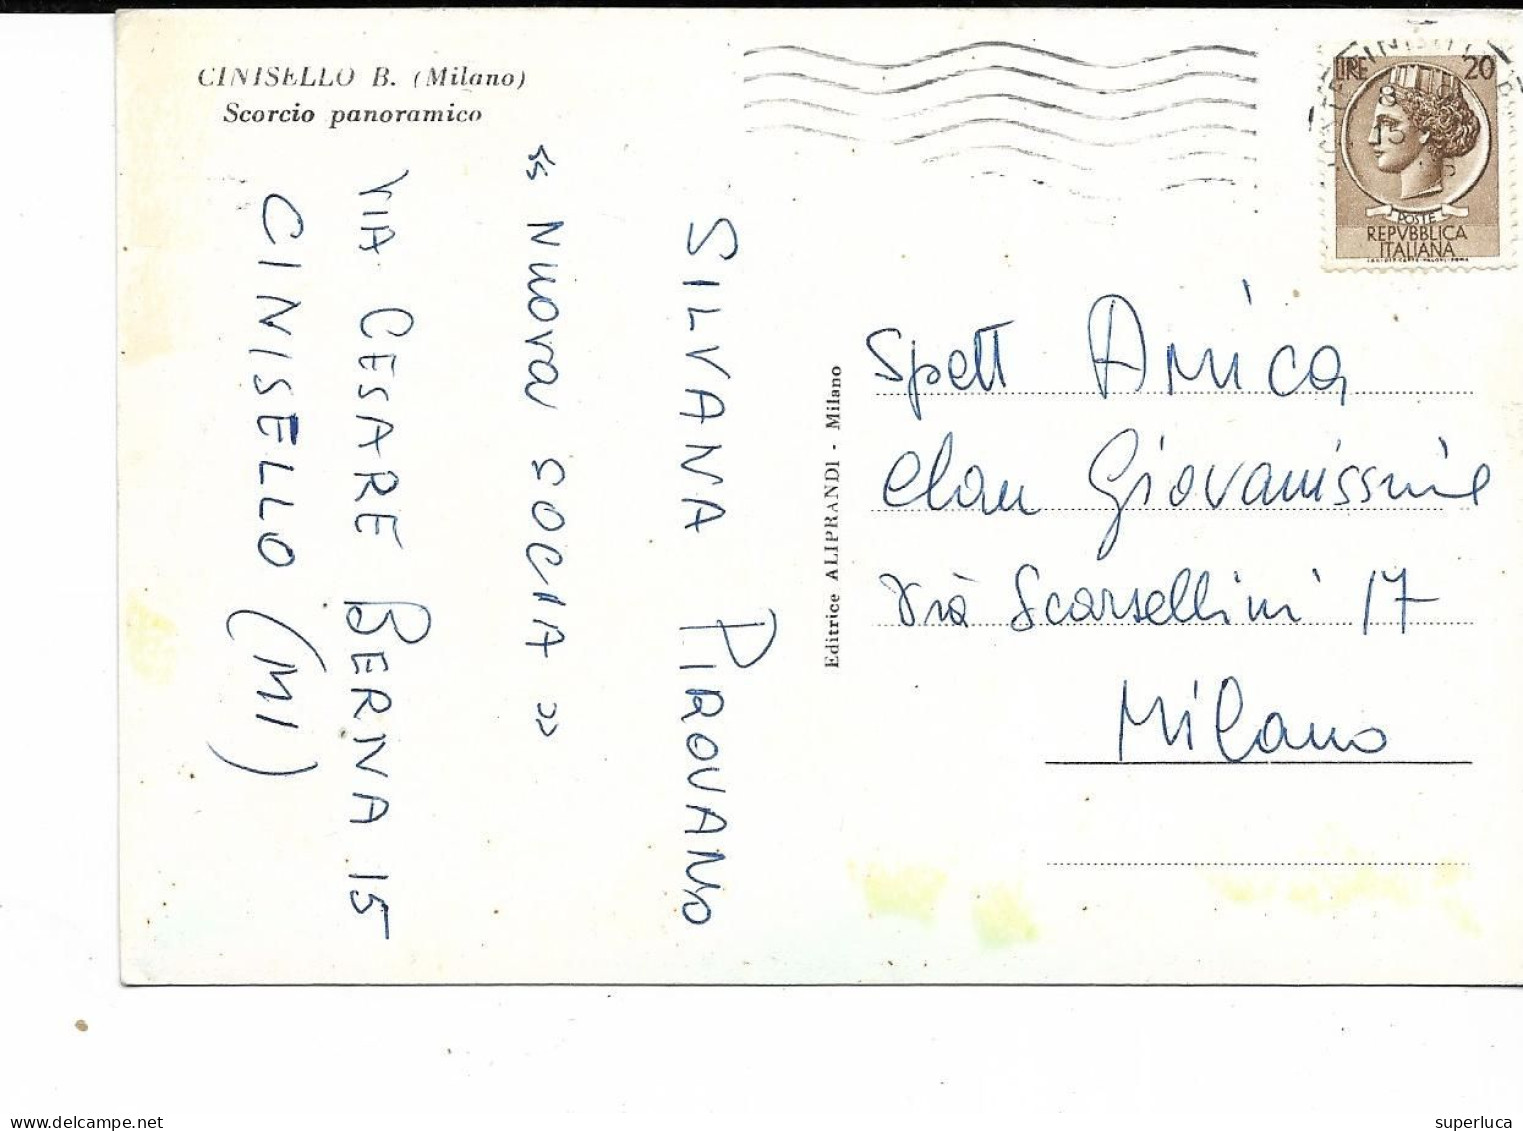 CINISELLO B. (Milano)
Scorcio panoramico
SILVANA PIROVANO
« Nuova SOCIA »
VIA CESARE BERNA 15
CINISELLO (MI)
Editrice ALIPRANDI - Milano
LIRE 20
POSTE
REPVBBLICA
ITALIANA
Spett Amica
clan Giovanissime
Via Scarsellini 17
Milano
superluca